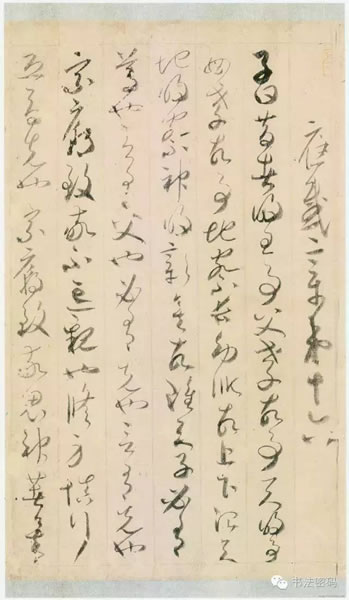 應感章第十六
子曰昔者明王事父孝故事天明事
母孝故事地察長幼順故上下治天
地明察神明彰矣故雖天子必有
尊也言有父也必有先也言有兄也
宗廟致敬不忘親也修身慎行
恐辱先也宗廟致敬鬼神著矣
书法密码